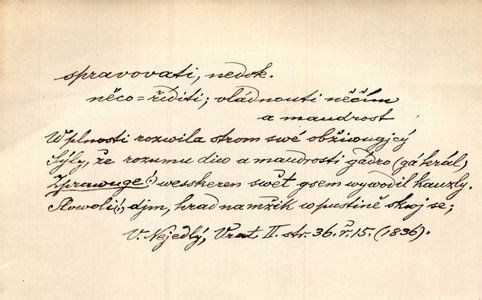 spravovati, nedok.
něco = říditi; vládnouti něčím
a maudrost
W plnosti rozwila strom swé obžiwugjcý
Sýly, že rozumu diw a maudrosti gádro (gá král)
Zprawuge(!) wesskeren swět gsem wywodil kauzly.
Slowo li(!), djm, hrad na mžik w pustině skwj se;
V. Nejedlý, Vrat. II. str. 36. ř. 15. (1836).